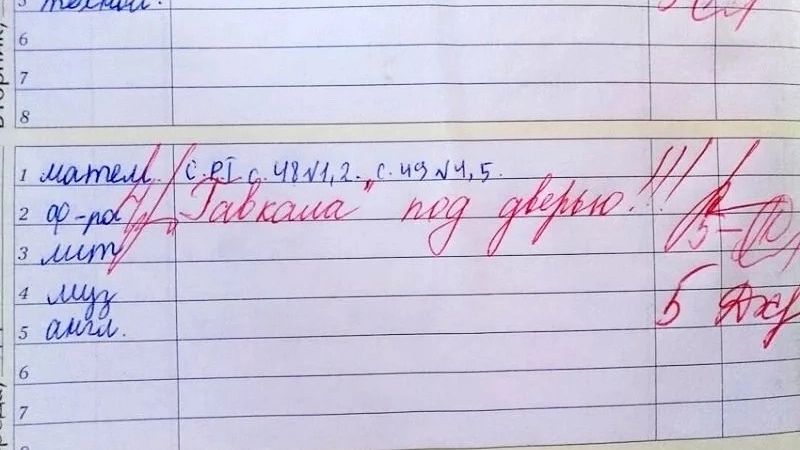 5
6
7
8
Вторник,
1 матем. с. РТ с. 48 №1, 2. с. 49 №4, 5.
2 ф-ра !!! "Гавкала" под дверью!!! 5-
3 лит
4 муз
5 англ. 5
6
7